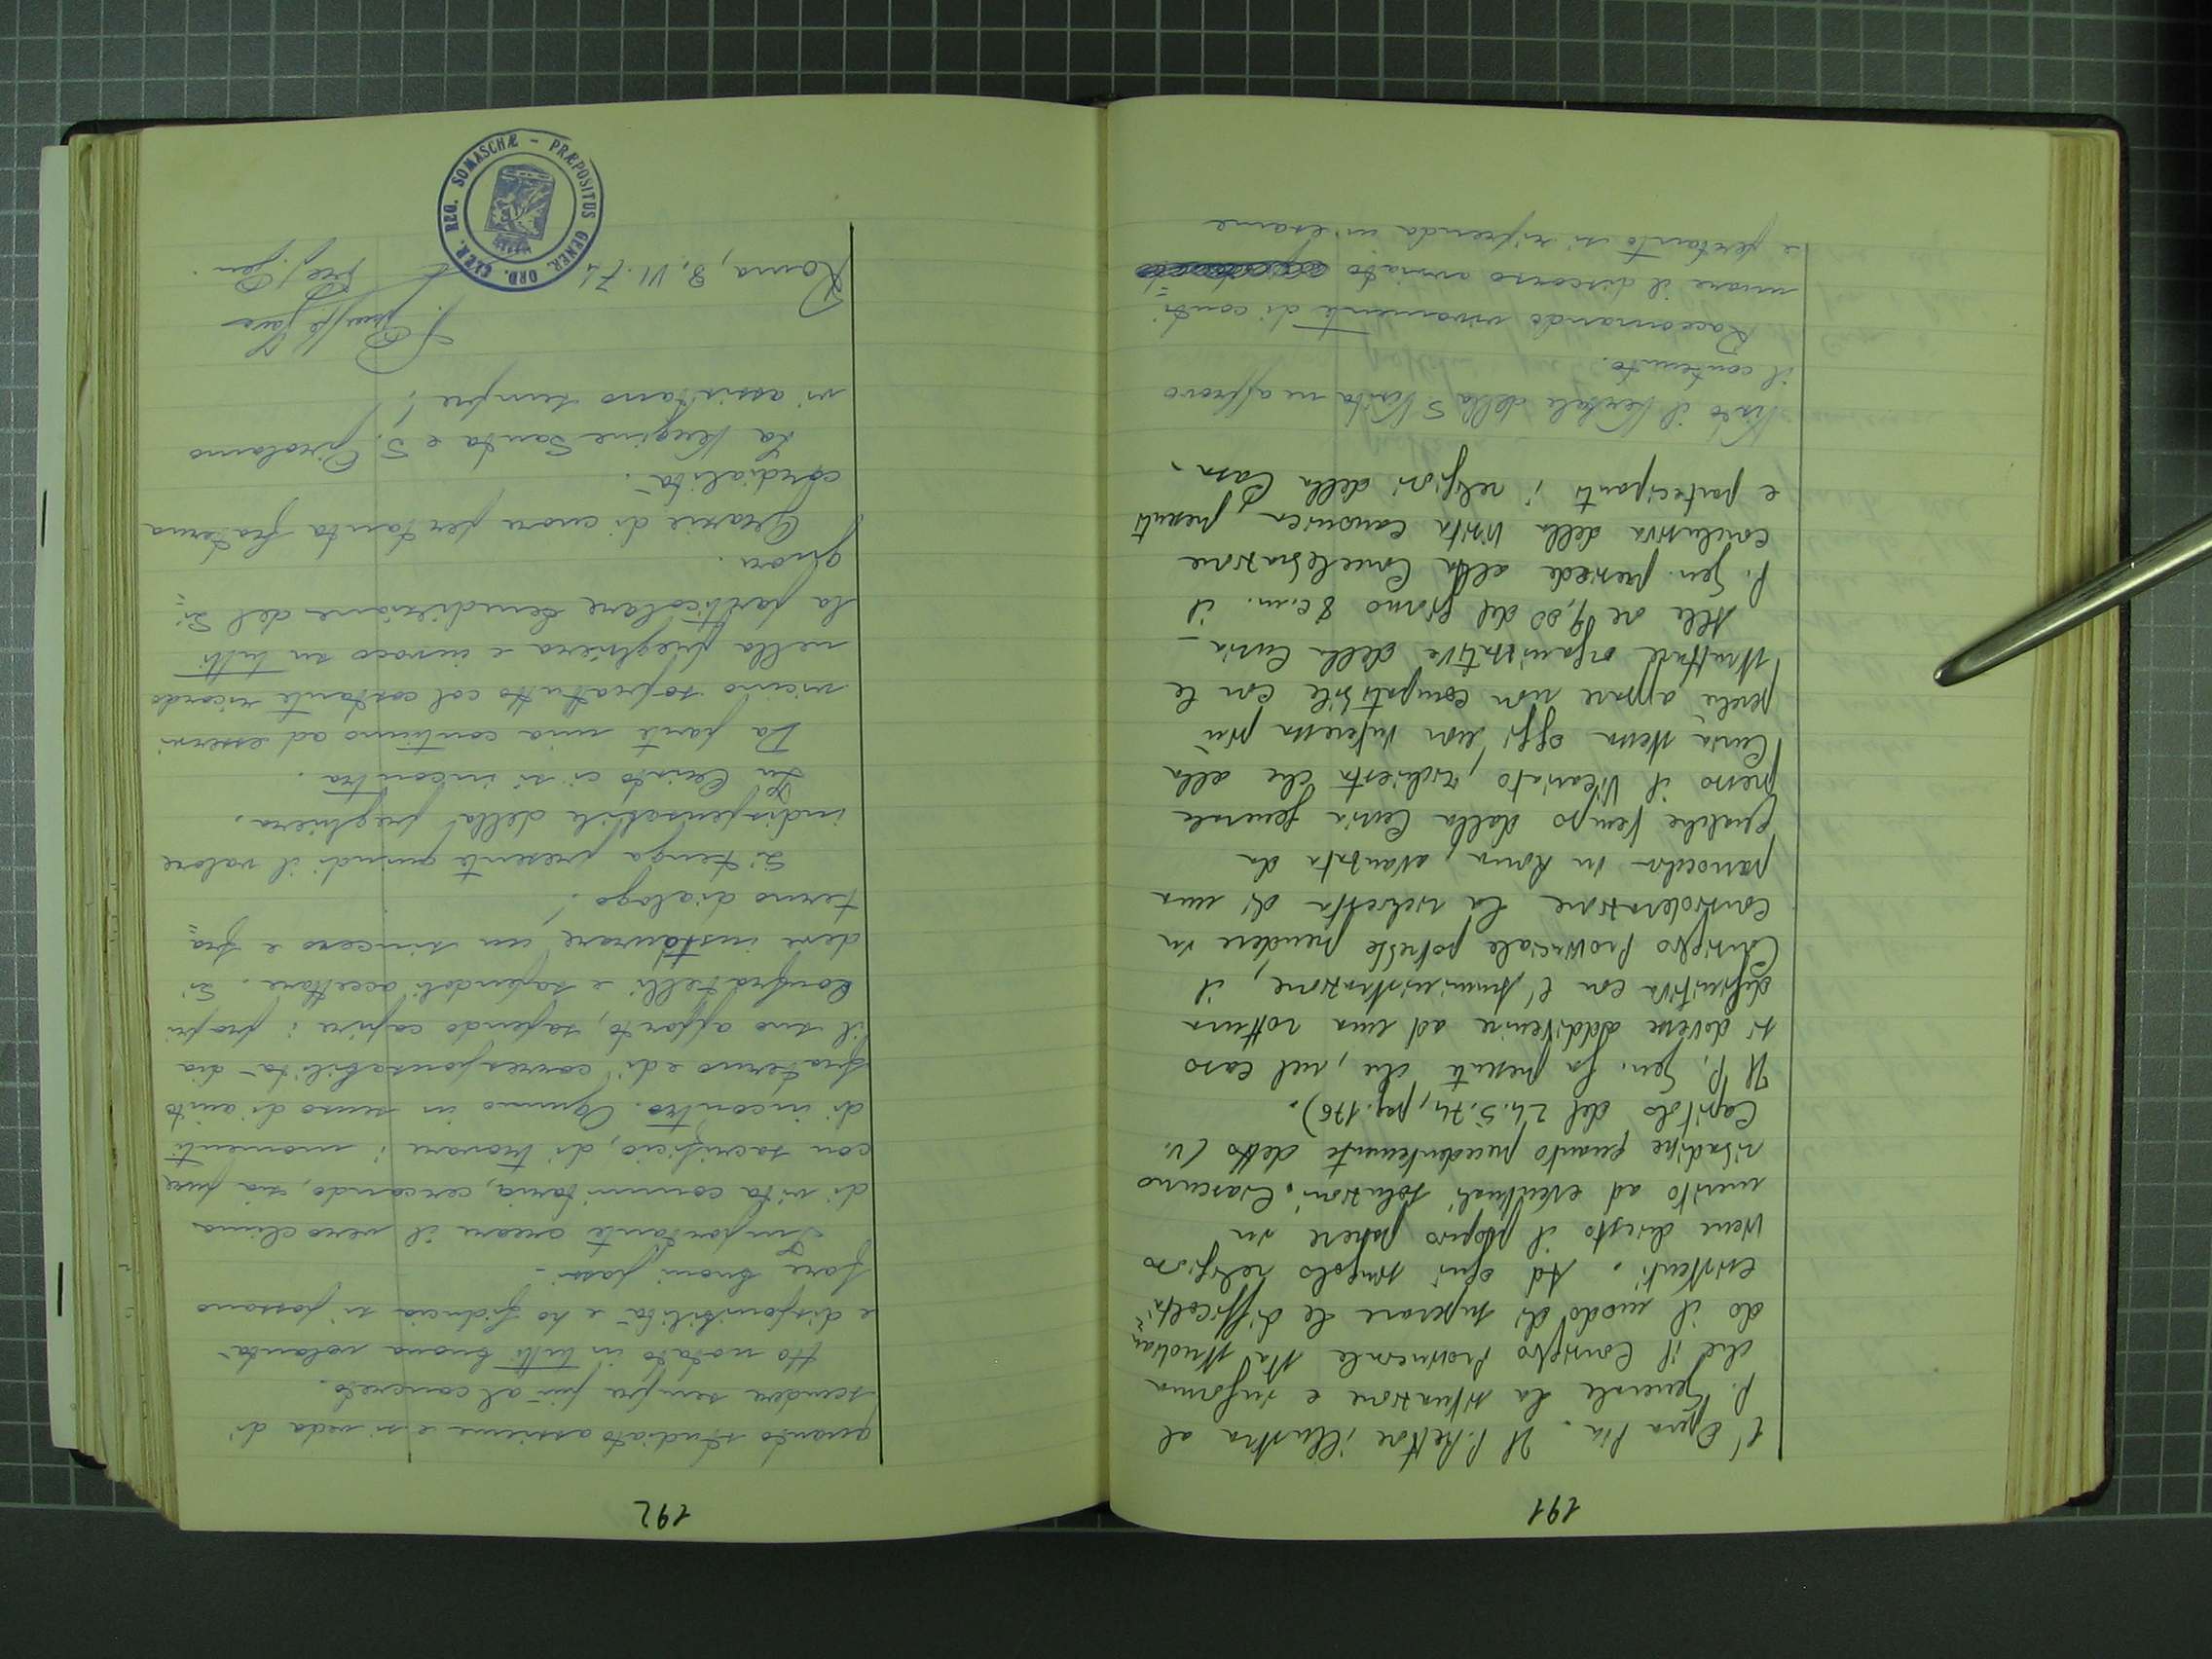 191
l'Opera Pia. Il P. Rettore illustra al
P. Generale la situazione e informa
che il Consiglio Provinciale sta studian
do il modo di superare le difficoltà
esistenti. Ad ogni singolo religioso
viene chiesto il proprio parere in
merito ad eventuali soluzioni. Ciascuno
ribadisce quanto precedentemente detto (v.
Capitolo del 24.5.74, pag. 176).
Il P. Gen. fa presente che, nel caso
si dovesse addivenire ad una rottura
definitiva con l'Amministrazione, il
Consiglio Provinciale potrebbe prendere in
considerazione la richiesta di una
parrocchia in Roma, avanzata da
qualche tempo dalla Curia generale
presso il Vicariato, richiesta che alla
Curia stessa oggi non interessa più
perché appare non compatibile con le
strutture organizzative della Curia.
Alle ore 9,00 del giorno 8 c.m. il
P. Gen. presiede alla Concelebrazione
conclusiva della Visita Canonica, presenti
e partecipanti i religiosi della Casa.
Visto il verbale della S. Visita ne approvo
il contenuto.
Raccomando vivamente di conti=
nuare il discorso avviato
e pertanto si riprenda in esame
192
quanto studiato assieme e si veda di
scendere sempre più al concreto.
Ho notato in tutti buona volontà
e disponibilità e ho fiducia si possano
fare buoni passi.
Importante creare il vero clima
di vita comunitaria, cercando, sia pure
con sacrificio, di trovare i momenti
di incontro. Ognuno in senso di aiuto
fraterno e di corresponsabilità dia
il suo apporto, sapendo capire i propri
confratelli e sapendoli accettare. Si
deve instaurare un sincero e fra=
terno dialogo!
Si tenga presente quindi il valore
indispensabile della preghiera.
In Cristo ci si incontra.
Da parte mia continuo ad esservi
vicino soprattutto col costante ricordo
nella preghiera e invoco su tutti
la particolare benedizione del Si=
gnore.
Grazie di cuore per tanta fraterna
cordialità.
La Vergine Santa e S. Girolamo
vi assistano sempre!
P. Giuseppe Fava
Roma, 8.VI.74
Prep. Gen.
PRÆPOSITUS GENER. ORD. CLER. REG. SOMASCHÆ -